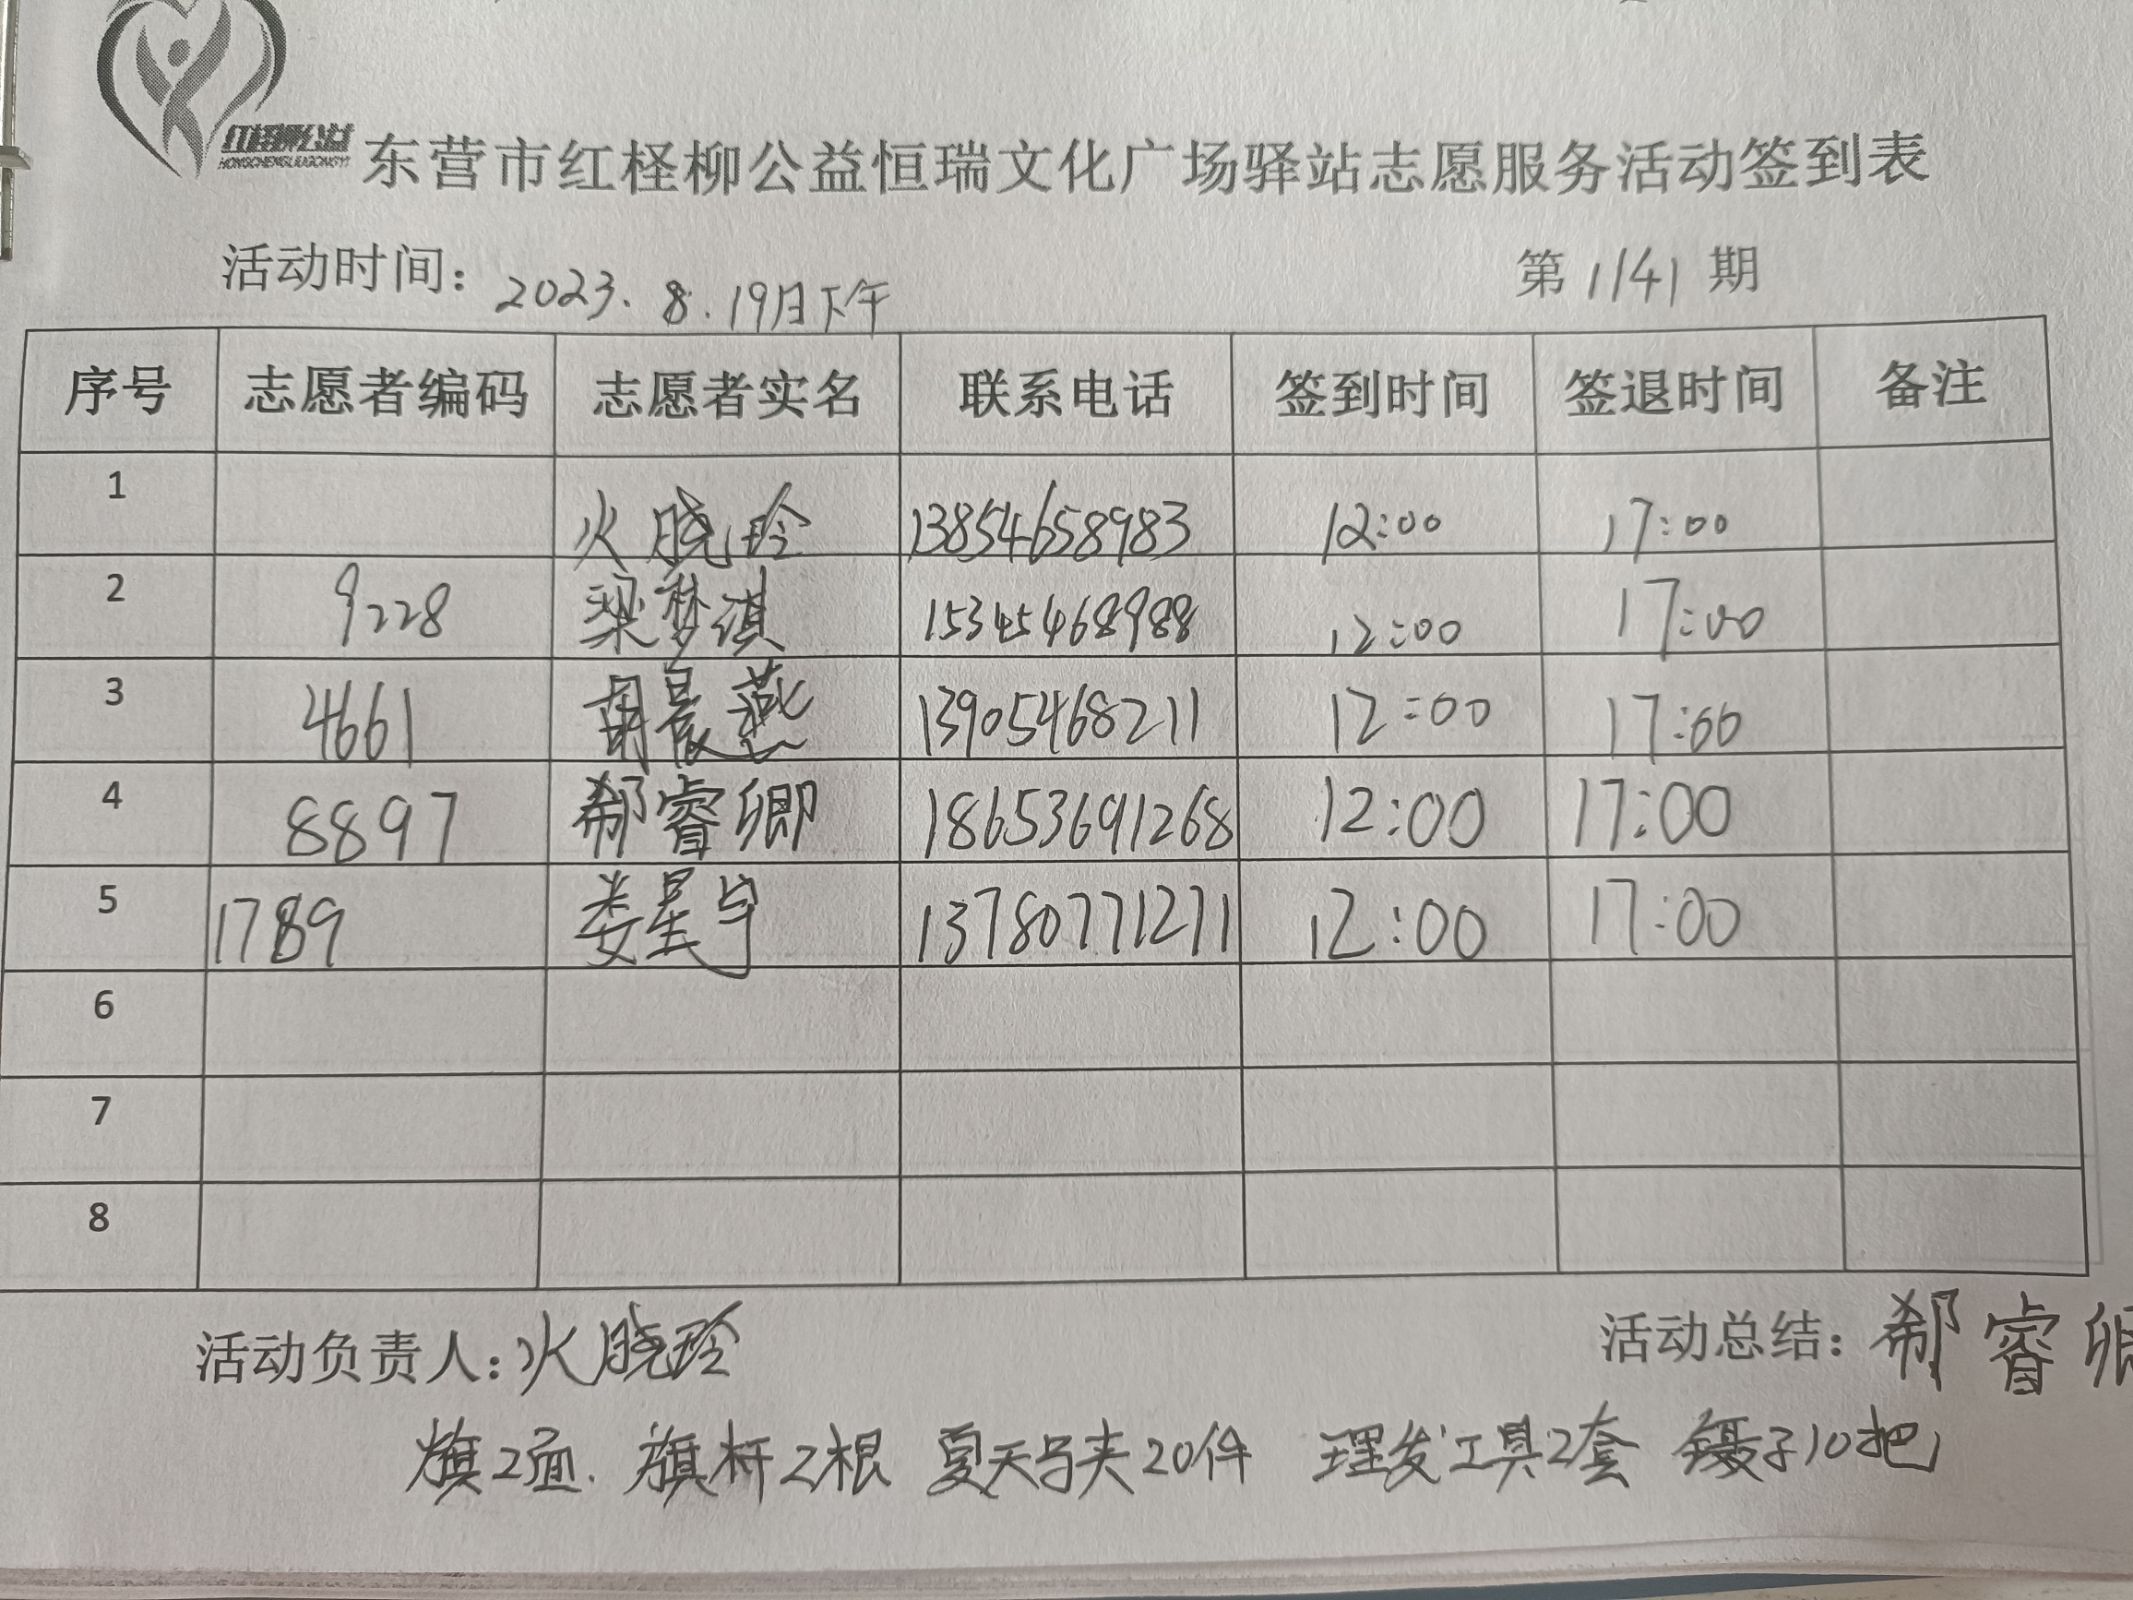 红柽柳公益
HONGCHENGLIUGONGYI
东营市红柽柳公益恒瑞文化广场驿站志愿服务活动签到表
活动时间：2023.8.19月下午 第1141期
序号 志愿者编码 志愿者实名 联系电话 签到时间 签退时间 备注
1 火晓玲 13854658983 12:00 17:00
2 9228 梁梦淇 15345468988 12:00 17:00
3 4661 胡晨燕 13905468211 12:00 17:00
4 8897 郗睿卿 18653691268 12:00 17:00
5 1789 娄星宇 13780771271 12:00 17:00
6
7
8
活动负责人：火晓玲 活动总结：郗睿卿
旗2面. 旗杆2根 夏天马夹20件 理发工具2套 镊子10把